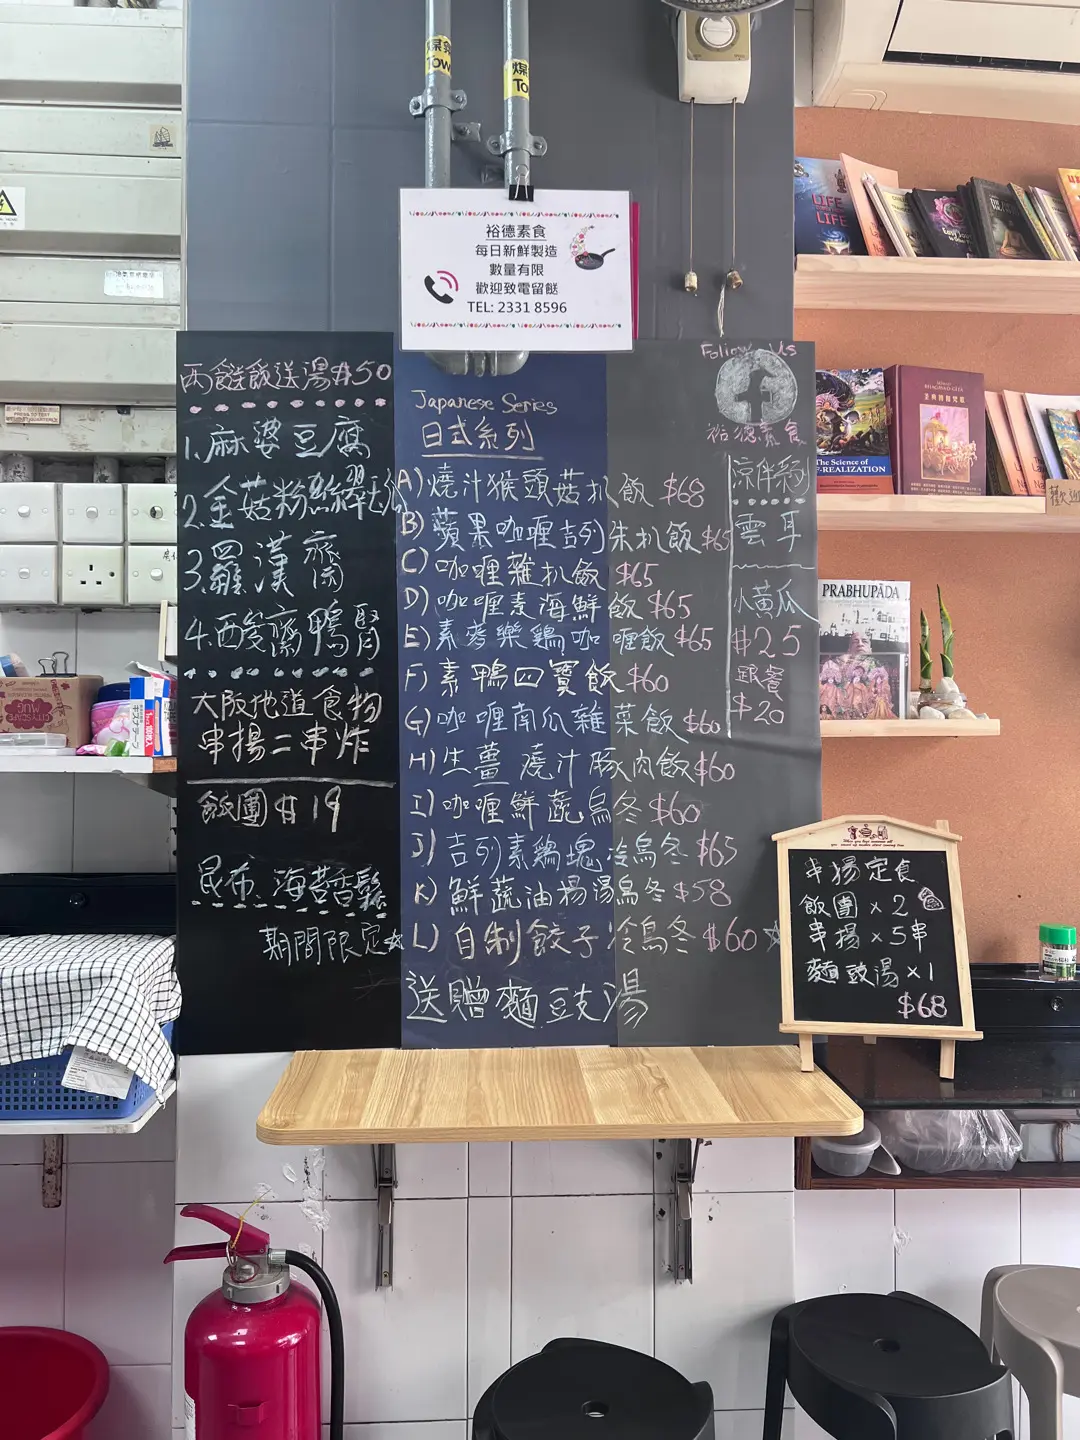 煤氣
TOW
煤
To
裕德素食
每日新鮮製造
數量有限
歡迎致電留餸
TEL: 2331 8596
両餸飯送湯$50
1.麻婆豆腐
2.金菇粉絲翠玉
3.羅漢齋
4.西芹齋鴨腎
大阪地道食物
串揚=串炸
飯團$19
昆布、海苔香鬆
期間限定☆
Japanese Series
日式系列
A)燒汁猴頭菇扒飯 $68
B)蘋果咖喱吉列朱扒飯$65
C)咖喱雜扒飯 $65
D)咖喱素海鮮飯 $65
E)素麥樂鷄咖喱飯$65
F)素鴨四寶飯$60
G)咖喱南瓜雜菜飯$60
H)生薑燒汁豚肉飯$60
I)咖喱鮮蔬烏冬$60
J)吉列素鷄塊冷烏冬$65
K)鮮蔬油揚湯烏冬$58
L)自制餃子冷烏冬$60☆
送贈麵豉湯
Follow Us
f
裕德素食
涼伴系列
雲耳
小黃瓜
$25
跟餐
$20
串揚定食
飯團×2
串揚×5串
麵豉湯×1
$68
LIFE
LIFE
BHAGAVAD-GITA
The Science of
SELF-REALIZATION
PRABHUPĀDA